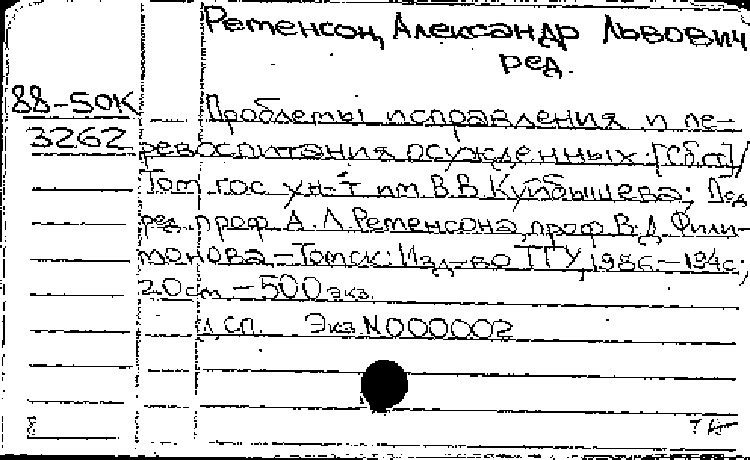 Ременсон, Александр Львович
ред.
88-50К
3262
Проблемы исправления и пе-
ревоспитания осужденных: [Сб.ст]/
Том гос ун-т им В.В Куйбышева; Под
ред. проф А.Л.Ременсона, проф В.Д Фили-
монова – Томск: Изд-во ТГУ, 1986. – 194с;
20 см – 500 экз.
Экз N000002